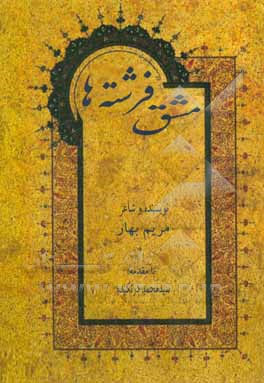 مشق فرشته ها
نویسنده و شاعر
مریم بهار
با مقدمه